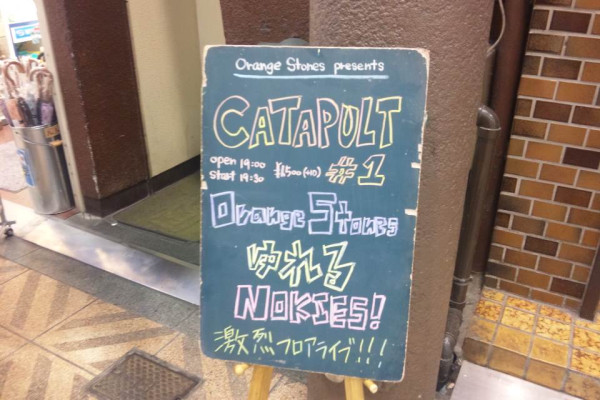 Orange Stones presents
CATAPULT
open 19:00
start 19:30 ¥1,500(+1D)
#1
Orange Stones
ゆれる
NOKIES!
激烈フロアライブ!!!